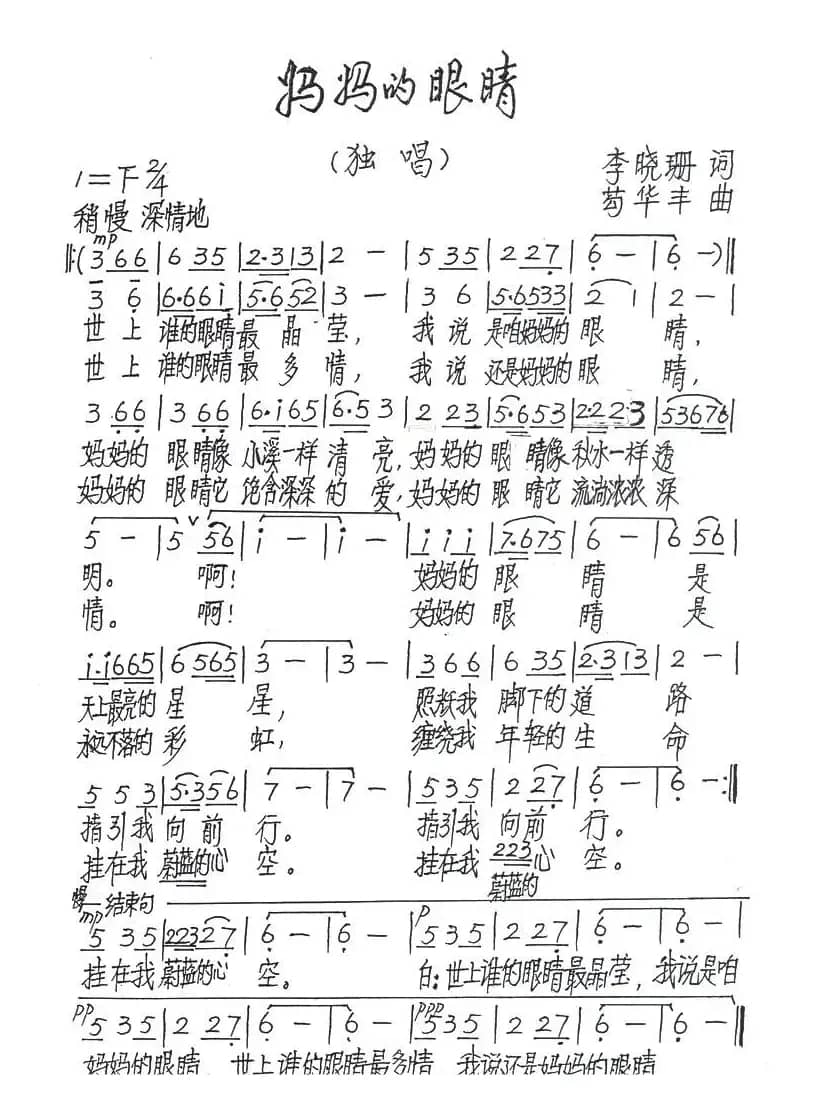 妈妈的眼睛
(独 唱)
李晓珊 词
苟华丰 曲
1=下 2/4
稍慢 深情地
mp
‖:(3 66 | 6 35 | 2·3 13 | 2 — | 5 35 | 2 27 | 6 — | 6 —)‖
3 6 | 6·66i | 5·652 | 3 — | 3 6 | 5·6533 | 2 1 | 2 — |
世上 谁的眼睛最晶莹, 我说 是咱妈妈的眼睛,
世上 谁的眼睛最多情, 我说 还是妈妈的眼睛,
3 66 | 3 66 | 6·i65 | 6·5 3 | 2 23 | 5·653 | 2·22·3 | 53676 |
妈妈的 眼睛像 小溪一样清亮,妈妈的眼睛像秋水一样透
妈妈的 眼睛它 饱含深深的爱,妈妈的眼睛它流淌浓浓深
5 — | 5 ∨ 56 | i — | i — | i i i | 7·675 | 6 — | 6 56 |
明。 啊! 妈妈的眼睛是
情。 啊! 妈妈的眼睛是
i·i665 | 6 565 | 3 — | 3 — | 3 6 6 | 6 35 | 2·3 13 | 2 — |
天上最亮的星星, 照抚我 脚下的道路
永远不落的彩虹, 缠绕我 年轻的生命
5 5 3 | 5·356 | 7 — | 7 — | 5 3 5 | 2 27 | 6 — | 6 —:‖
指引我向前行。 指引我向前行。
挂在我蔚蓝的心空。 挂在我 223 心空。
蔚蓝的
慢 结束句
mp p
5 35 | 22327 | 6 — | 6 — | 5 35 | 2 27 | 6 — | 6 — |
挂在我蔚蓝的心空。 白:世上谁的眼睛最晶莹,我说是咱
pp ppp
5 35 | 2 27 | 6 — | 6 — | 5 35 | 2 27 | 6 — | 6 — ‖
妈妈的眼睛 世上谁的眼睛最多情 我说还是妈妈的眼睛